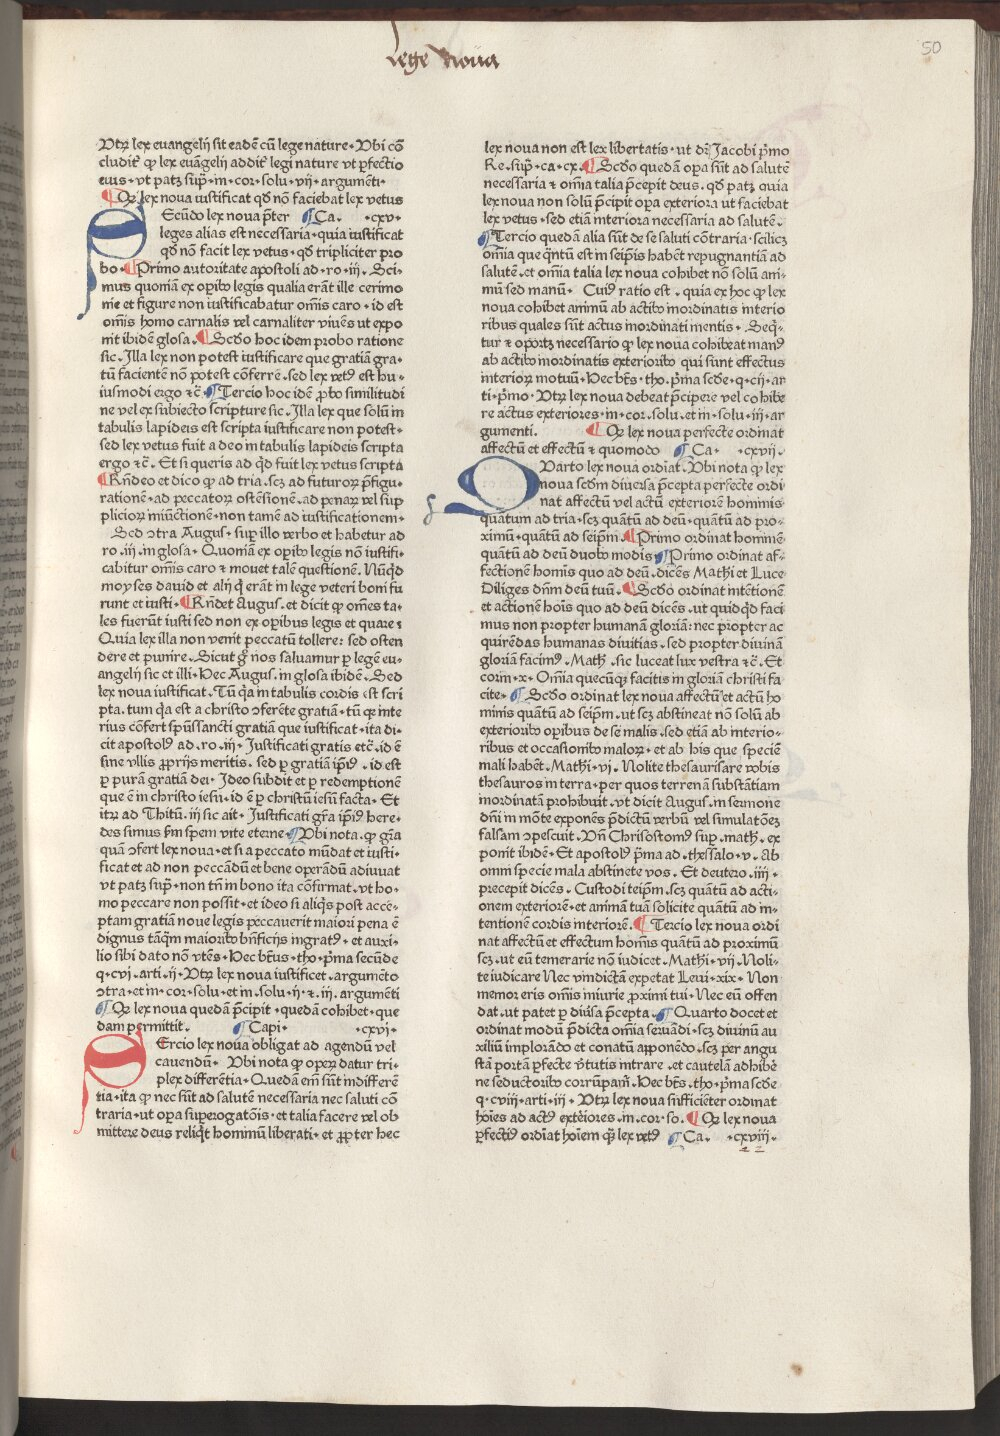 Lege Noua
50
Vtꝝ lex euangelij sit eadē cū lege nature· Vbi cō
cludit̄ ꝙ lex euāgelij addit̄ legi nature vt ꝑfectio
eius· vt patꝫ supͣ· in· cor· solu· vij· argumēti·
¶ Qꝛ lex noua iustificat qd̄ nō faciebat lex vetus
Ecūdo lex noua p̄ter ¶ Ca. ·cxv·
leges alias est necessaria· quia iustificat
qd̄ nō facit lex vetus· qd̄ tripliciter pro
bo· ¶ Primo autoritate apostoli ad· ro· iij. Sci-
mus quoniā ex oꝑibꝰ legis qualia erāt ille cerimo
nie et figure non iustificabatur om̄is caro· id est
om̄is homo carnalis vel carnaliter viuēs ut expo
nit ibidē glosa. ¶ Scd̄o hoc idem probo ratione
sic. Illa lex non potest iustificare que gratiā gra-
tū facientē nō potest cōferre. sed lex vetꝰ est hu-
iusmodi ergo ⁊c̄· ¶ Tercio hoc idē ꝓbo similitudi
ne vel ex subiecto scripture sic. Illa lex que solū in
tabulis lapideis est scripta iustificare non potest·
sed lex vetus fuit a deo in tabulis lapideis scripta
ergo ⁊c̄. Et si queris ad qͥd fuit lex vetus scripta
¶ Rn̄deo et dico ꝙ ad tria. scꝫ ad futuroꝝ p̄figu-
rationē· ad peccatoꝝ ostēsionē· ad penaꝝ vel sup
plicioꝝ iniūctionē· non tamē ad iustificationem·
Sed ɔtra Augus· suꝑ illo verbo et habetur ad
ro. iij. in glosa· Quoniā ex oꝑibꝰ legis nō iustifi-
cabitur om̄is caro ⁊ mouet talē questionē. Nūqͥd
moyses dauid et alij qͥ erāt in lege veteri boni fu
runt et iusti· ¶ Rn̄det Augus. et dicit ꝙ om̄es ta-
les fuerūt iusti sed non ex oꝑibus legis et quare ⁊
Quia lex illa non venit peccatū tollere: sed osten
dere et punire. Sicut gͦ nos saluamur ꝑ legē eu-
angelij sic et illi· Hec Augus. in glosa ibidē. Sed
lex noua iustificat. Tū qͥa in tabulis cordis est scri
pta. tum qͥa est a christo ɔferēte gratiā· tū qꝛ inte
rius cōfert spūssancti gratiā que iustificat· ita di-
cit apostolꝰ ad. ro. iij· Justificati gratis etc̄. id ē
sine vllis ꝓprijs meritis. sed ꝑ gratiā ip̄iꝰ. id est
ꝑ purā gratiā dei· Ideo subdit et ꝑ redemptionē
que ē in christo iesu· id ē ꝑ christū iesū facta· Et
itꝝ ad Thitū. iij sic ait· Justificati gr̄a ip̄iꝰ here-
des simus s̄m spem vite eterne· ¶ Vbi nota. ꝙ gr̄a
quā ɔfert lex noua· et si a peccato mūdat et iusti-
ficat et ad non peccādū et bene operādū adiuuat
vt patꝫ supͣ· non tn̄ in bono ita cōfirmat. vt ho-
mo peccare non possit· et ideo si aliqͥs post acce-
ptam gratiā noue legis peccauerit maiori pena ē
dignus tāqͣm maioribꝰ bn̄ficijs ingratꝰ· et auxi-
lio sibi dato nō vtēs· Hec bt̄us· tho· pͥma secūde
q· cvi· arti· ij· Vtꝝ lex noua iustificet. argumēto
ɔtra· et in· cor· solu· et in. solu· ij· ⁊. iij. argumēti
¶ Qꝛ lex noua quedā p̄cipit· quedā cohibet· que
dam permittit. ¶ Capi· ·cxvi·
Ercio lex noua obligat ad agendū vel
cauendū· Vbi nota ꝙ oꝑꝝ datur tri-
plex differētia· Quedā em̄ sūt indifferē
tia· ita ꝙ nec sūt ad salutē necessaria nec saluti cō
traria· ut oꝑa suꝑerogatōis· et talia facere vel ob
mittere deus reliqͥt hominū liberati· et ꝓpter hec
lex noua non est lex libertatis· ut dꝛ Jacobi pͥmo
Re. supͣ· ca· cx. ¶ Scd̄o quedā oꝑa sūt ad salutē
necessaria ⁊ om̄ia talia p̄cepit deus. qd̄ patꝫ quia
lex noua non solū p̄cipit oꝑa exteriora ut faciebat
lex vetus· sed etiā interiora necessaria ad salutē.
¶ Tercio quedā alia sūt de se saluti cōtraria· scilicꝫ
om̄ia que qͣntū est in seip̄is habēt repugnantiā ad
salutē. et om̄ia talia lex noua cohibet nō solū ani-
mū sed manū· Cuiꝰ ratio est. quia ex hoc ꝙ lex
noua cohibet animū ab actibꝰ inordinatis interio
ribus quales sūt actus inordinati mentis· Seqͥ-
tur ⁊ oportꝫ necessario ꝙ lex noua cohibeat manꝰ
ab actibꝰ inordinatis exterioribꝰ qui sunt effectus
interioꝝ motuū· Hec bt̄s· tho. pͥma scd̄e· q· cij· ar
ti· pͥmo· Vtꝝ lex noua debeat p̄cipere vel cohibe
re actus exteriores· in· cor. solu. et in· solu· iij· ar
gumenti. ¶ Qꝛ lex noua perfecte ordinat
affectū et effectū ⁊ quomodo ¶ Ca· ·cxvij·
Varto lex noua ordīat. Vbi nota ꝙ lex
noua scd̄m diuersa p̄cepta perfecte ordi
nat affectū vel actū exteriorē hominis
quatum ad tria· scꝫ quātū ad deū· quātū ad pro-
ximū· quātū ad seip̄m. ¶ Primo ordinat hominē
quātū ad deū duobꝰ modis ¶ Primo ordinat af-
fectionē hominis quo ad deū. dicēs Mathi et Luce
Diliges dn̄m deū tuū. ¶ Scd̄o ordinat intētionē
et actionē hoīs quo ad deū dicēs. ut quidqͥd faci
mus non propter humanā gloriā: nec ꝓpter ac
quirēdas humanas diuitias. sed propter diuinā
gloriā facimꝰ. Math̄. sic luceat lux vestra ⁊c̄. Et
corin· x· Om̄ia quecūqꝫ facitis in gloriā christi fa
cite· ¶ Scd̄o ordinat lex noua affectū et actū ho
minis quātū ad seip̄m. ut scꝫ abstineat nō solū ab
exterioribꝰ oꝑibus de se malis. sed etiā ab interio-
ribus et occasionibꝰ maloꝝ· et ab his que speciē
mali habēt. Mathi· vj. Nolite thesaurisare vobis
thesauros in terra· per quos terrenā substantiam
inordinatā prohibuit. vt dicit Augus. in sermone
dn̄i in mōte exponēs p̄dictū verbū vel simulatōeꝫ
falsam ɔpescuit. Vn̄ Chrisostomꝰ suꝑ. math̄. ex
ponit ibidē· Et apostolꝰ pͥma ad· thessalo· v. Ab
omni specie mala abstinete vos. Et deutero. iiij·
precepit dicēs. Custodi teip̄m. scꝫ quātū ad acti-
onem exteriorē· et animā tuā solicite quātū ad in-
tentionē cordis interiorē. ¶ Tercio lex noua ordi
nat affectū et effectum hominis quātū ad proximū
scꝫ. ut eū temerarie nō iudicet. Mathi· vij. Noli-
te iudicare Nec vindictā expetat Leui· xix· Non
memor eris om̄is iniurie ꝓximi tui· Nec eū offen
dat. ut patet ꝑ diuisa p̄cepta. ¶ Quarto docet et
ordinat modū p̄dicta om̄ia seruādi· scꝫ diuinū au
xiliū implorādo et conatū apponēdo. scꝫ per angu
stā portā ꝑfecte v̄tutis intrare. et cautelā adhibē
ne seductoribꝰ corrūpam̄. Hec bt̄s. tho· pͥma scd̄e
q· cviij· arti· iij· Vtꝝ lex noua sufficiēter ordinat
hoīes ad actꝰ exteriores. in. cor. so. ¶ Qꝛ lex noua
ꝑfectiꝰ ordīat hoīem qͣꝫ lex vetꝰ ¶ Ca. ·cxviij·